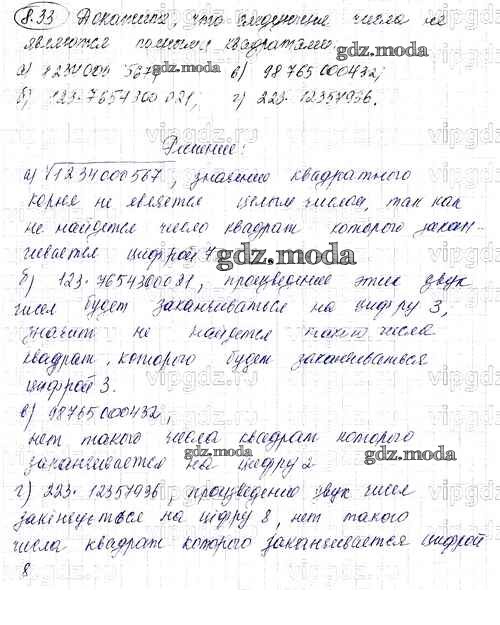 8.33 Докажите, что следующие числа не
являются полными квадратами:
а) 1234000567; в) 98765000432;
б) 123·7654300021; г) 223·12357936.
Решение:
а) √1234000567, значение квадратного
корня не является целым числом, так как
не найдется число квадрат которого закан-
чивается цифрой 7
б) 123·7654300021, произведение этих двух
чисел будет заканчиваться на цифру 3,
значит не найдется такого числа
квадрат, которого будет заканчиваться
цифрой 3.
в) 98765000432,
нет такого числа квадрат которого
заканчивается на цифру 2
г) 223·12357936, произведение двух чисел
закінчується на цифру 8, нет такого
числа квадрат которого заканчивается цифрой
8
gdz.moda
gdz.moda
gdz.moda
gdz.moda
gdz.moda
gdz.moda